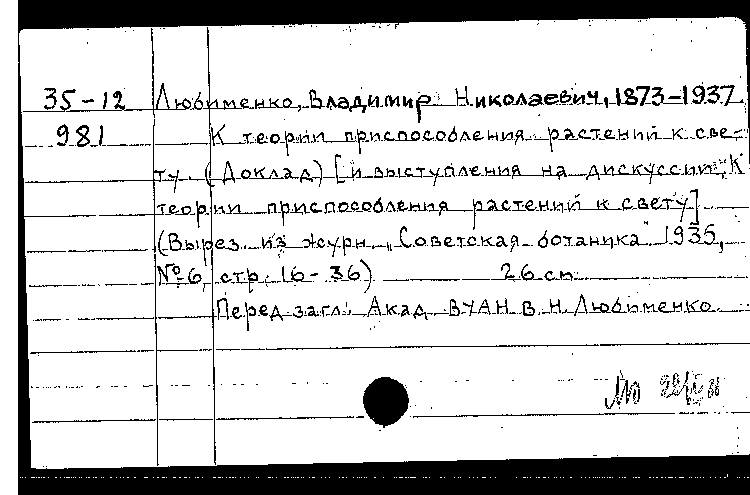 35-12 Любименко, Владимир Николаевич, 1873-1937
981 К теории приспособления растений к све-
ту. (Доклад) [и выступления на дискуссии „К
теории приспособления растений к свету]
(Вырез. из журн. „Советская ботаника" 1935,
№6, стр. 16-36) 26 см
Перед загл.: Акад. ВУАН В. Н. Любименко.